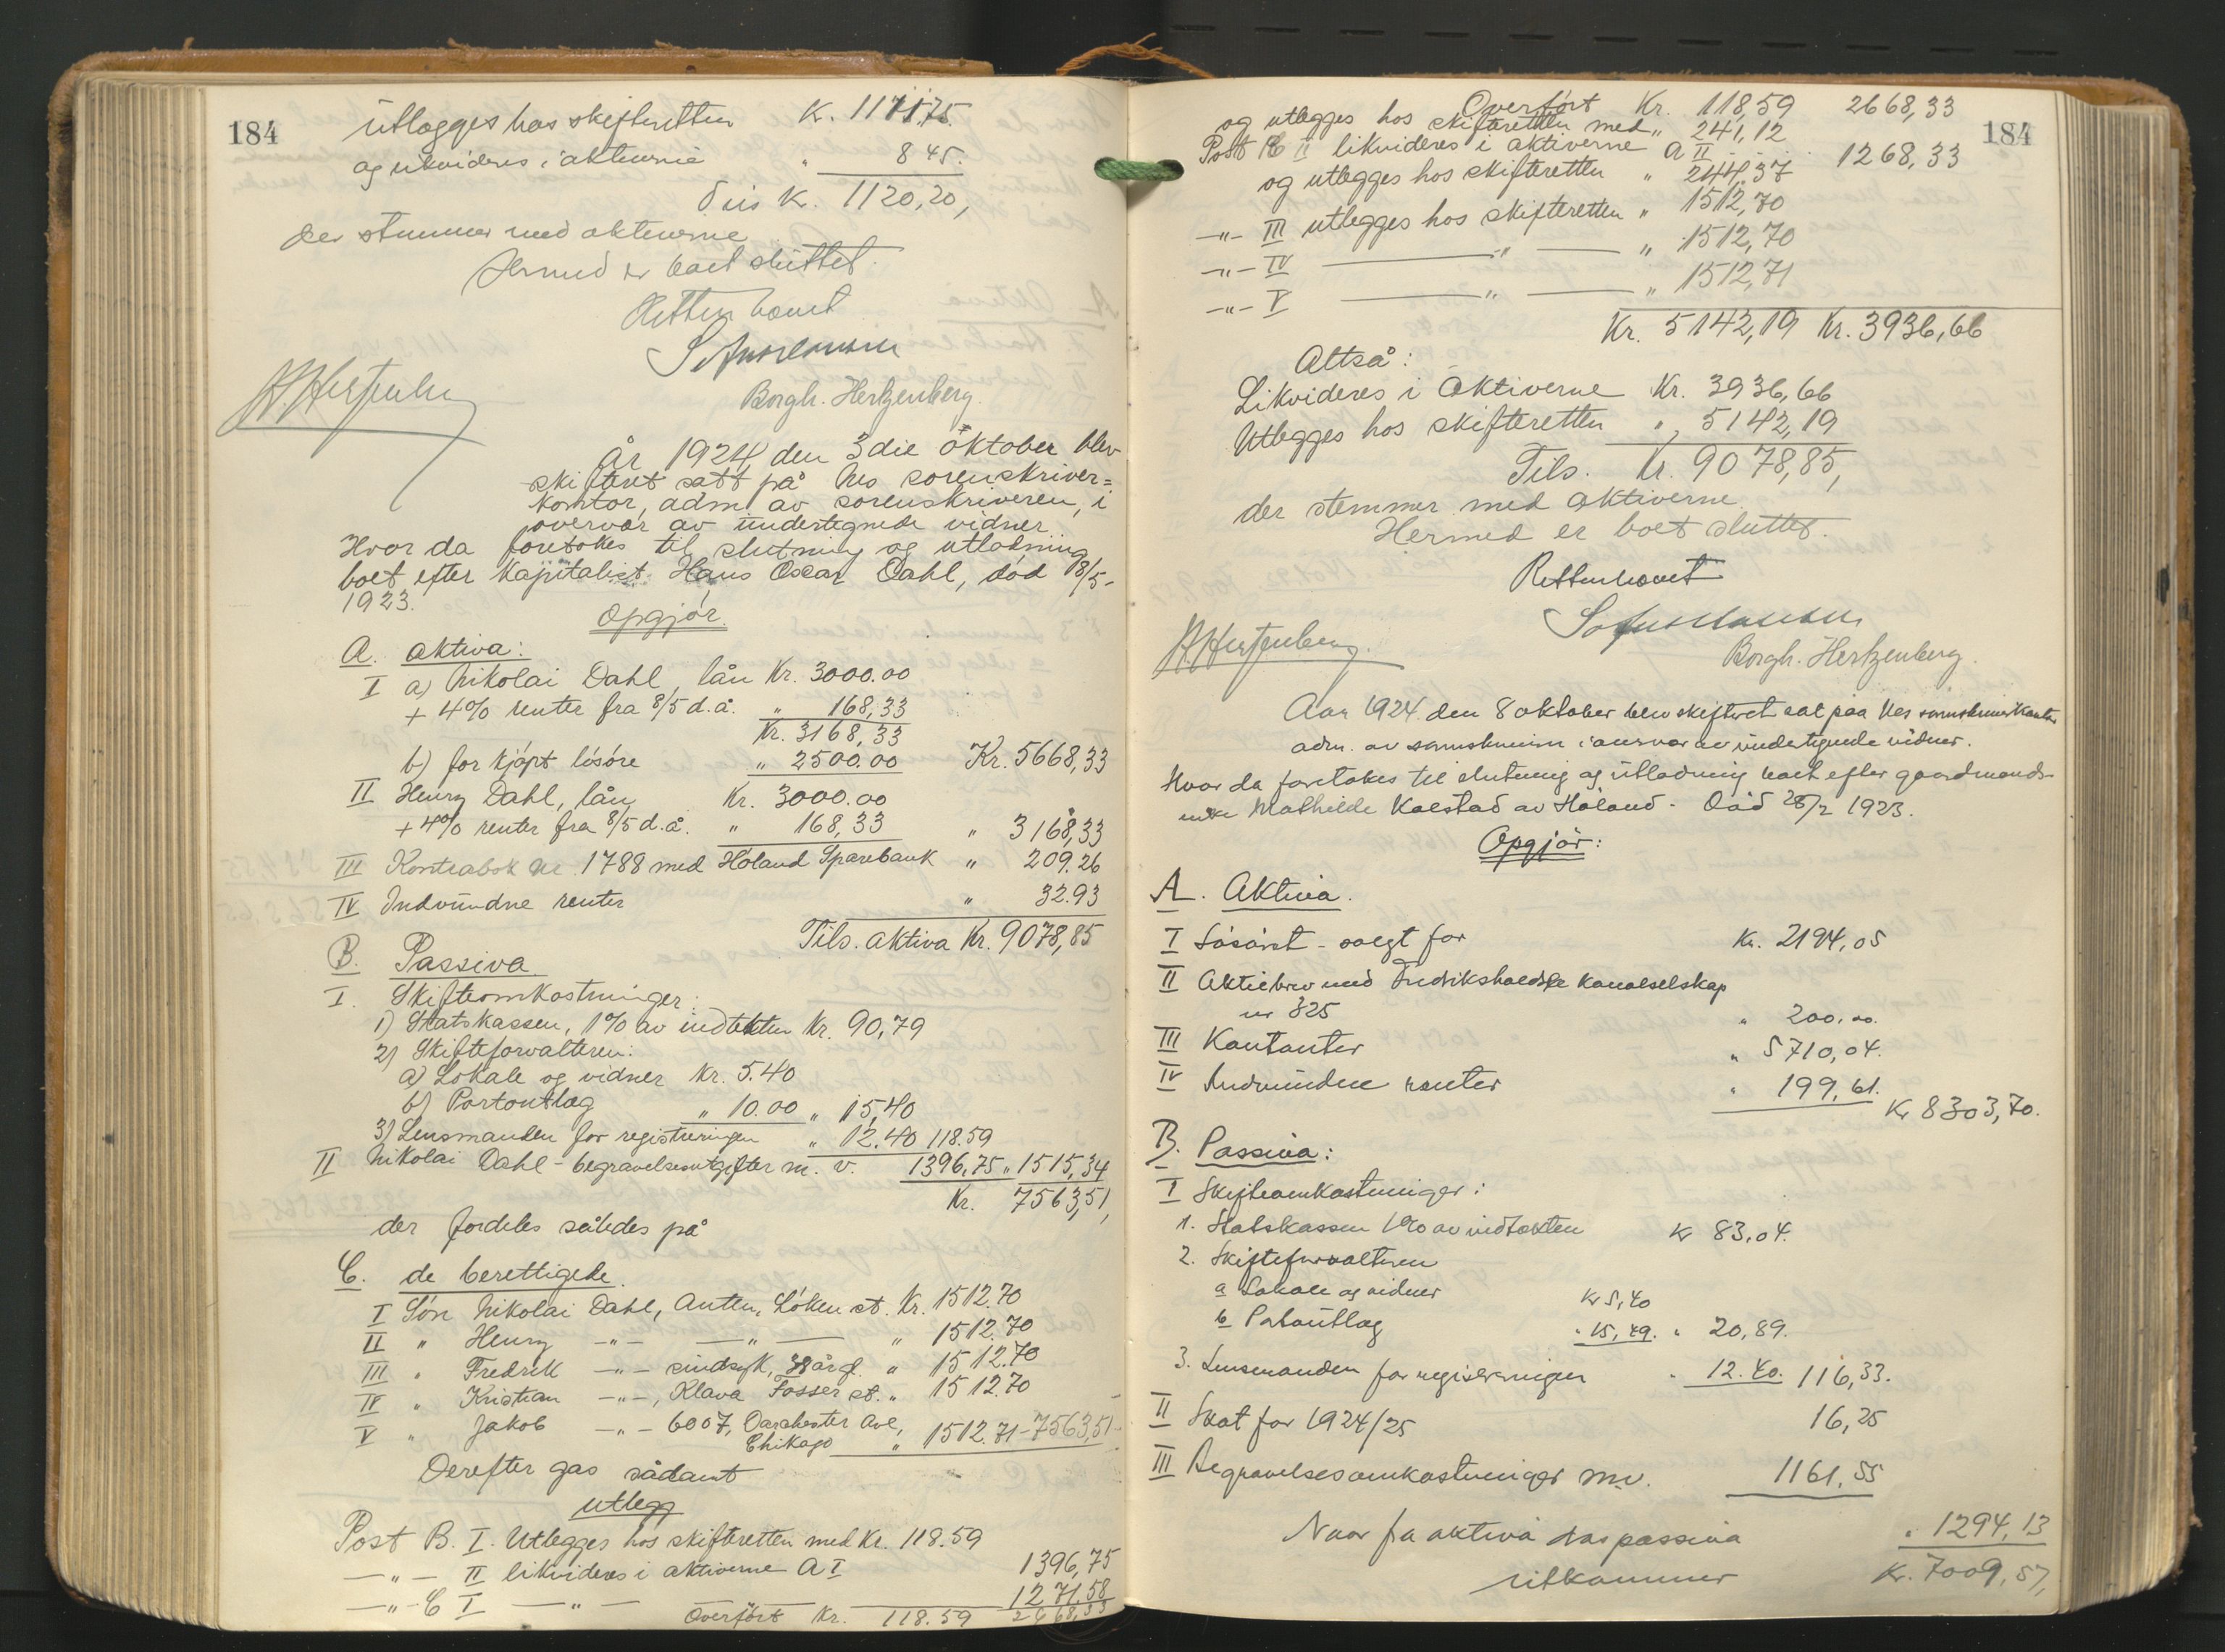 184
Utlægges hos skifteretten K. 1111,75.
og likvideres i aktiverne " 8 45.
Tils K. 1120,20,
der stemmer med aktiverne
Hermed er boet sluttet.
Retten hævet
Borgh. Hertzenberg.
H. Hertzenberg
År 1924 den 3die oktober blev
skifteret satt på Nes sorenskriver=
kontor, adm. av sorenskriveren, i
overvær av undertegnede vidner
Hvor da foretokes til slutning og utlodning
boet efter kapitalist Hans Oscar Dahl, död 18/5-
1923.
Opgjör.
A. aktiva:
I a) Nikolai Dahl, lån Kr. 3000.00
+ 4% renter fra 8/5 d.å. " 168,33
Kr. 3168,33
b) for kjöpt lösöre " 2500.00 Kr. 5668,33
II Henry Dahl, lån Kr. 3000.00
+ 4% renter fra 8/5 d.å. " 168,33 " 3168,33
III Kontrabok No 1788 med Höland Sparebank " 209.26
IV Indvundne renter " 32.93
Tils. aktiva Kr. 9078,85
B. Passiva
I. Skifteomkostninger:
1) Statskassen, 1% av indtekten Kr. 90,79
2) Skifteforvalteren:
a) Lokale og vidner Kr. 5.40
b) Portoutlæg " 10.00 " 15,40
3) Lensmanden for registreringen " 12.40 118.59
II Nikolai Dahl - begravelsesutgifter m. v. 1396,75 " 1515,34
Kr. 7563,51,
der fordeles således på
C. de berettigede.
I Sön Nikolai Dahl, Anten, Löken st. Kr. 1512.70
II " Henry -"- -"- " 1512.70
III " Fredrik -"- sindsyk, " 1512.70
IV " Kristian -"-, Klava Fosser st. " 1512.70
V " Jakob -"- 6007, Darchester Ave,
Chikago " 1512.71 - 7563,51-
Derefter gas sådant
utlegg
Post B. I. Utlegges hos skifteretten med Kr. 118.59
-"- II likvideres i aktiverne A I 1396,75
-"- C I -"- 1271,58
Overfört Kr. 118.59 2668,33
184
Overfört Kr. 118,59 2668,33
og utlegges hos skifteretten med " 241,12
Post C II likvideres i aktiverne A II - - - 1268,33
og utlegges hos skifteretten " 244,37
-"- III utlegges hos skifteretten " 1512,70
-"- IV -"- " 1512,70
-"- V -"- " 1512,71
Kr. 5142,19 Kr. 3936,66
Altså:
Likvideres i aktiverne Kr. 3936,66
Utlegges hos skifteretten " 5142,19
Tils. Kr. 9078,85,
der stemmer med aktiverne
Hermed er boet sluttet.
Retten hævet
H. Hertzenberg.
Borgh. Hertzenberg.
Aar 1924 den 8 oktober blev skifteret sat paa Nes sorenskriverkontor
adm. av sorenskriveren i overvær av undertegnede vidner.
Hvor da foretokes til slutning og utlodning boet efter gaardmands-
enke Mathilde Kolstad av Höland. Död 28/2 1923.
Opgjör:
A. Aktiva.
I Lösöret - solgt for Kr. 2194,05
II Aktiebrev med Fredrikshaldske kanalselskap
nr 325 " 200,00.
III Kontanter " 5710,04.
IV Indvundne renter " 199,61.
Kr 8303,70.
B. Passiva:
I Skifteomkostninger:
1. Statskassen 1% av indtækten Kr 83,04.
2. Skifteforvalteren
a Lokale og vidner Kr 5,40
b Portoutlæg " 15,49. " 20,89.
3. Lensmanden for registreringen " 12.40. 116,33.
II Skat for 1924/25 16,25
III Begravelsesomkostninger m.v. 1161,55
Naar fra aktiva tas passiva " 1294,13
utkommer Kr. 7009,57,